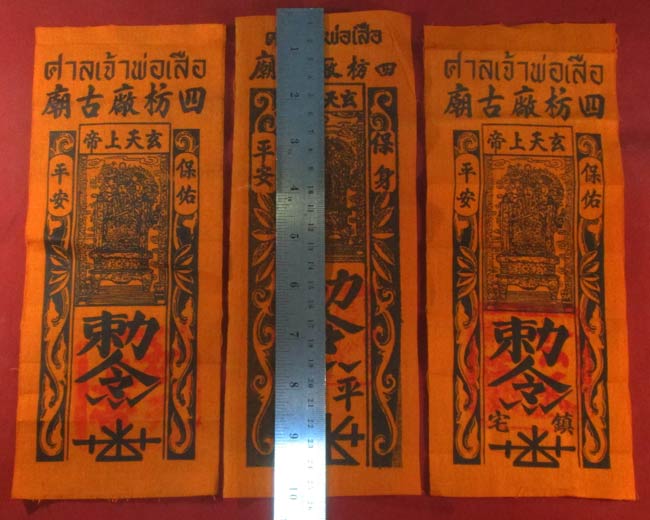 ศาลเจ้าพ่อเสือ
四枋廠古廟
玄天上帝
保佑
平安
勅令
พ่อเสือ
四枋廠 廟
玄天
保身
平安
平
1
2
3
4
5
6
7
8
9
10
ศาลเจ้าพ่อเสือ
四枋廠古廟
玄天上帝
保佑
平安
勅令
鎮宅